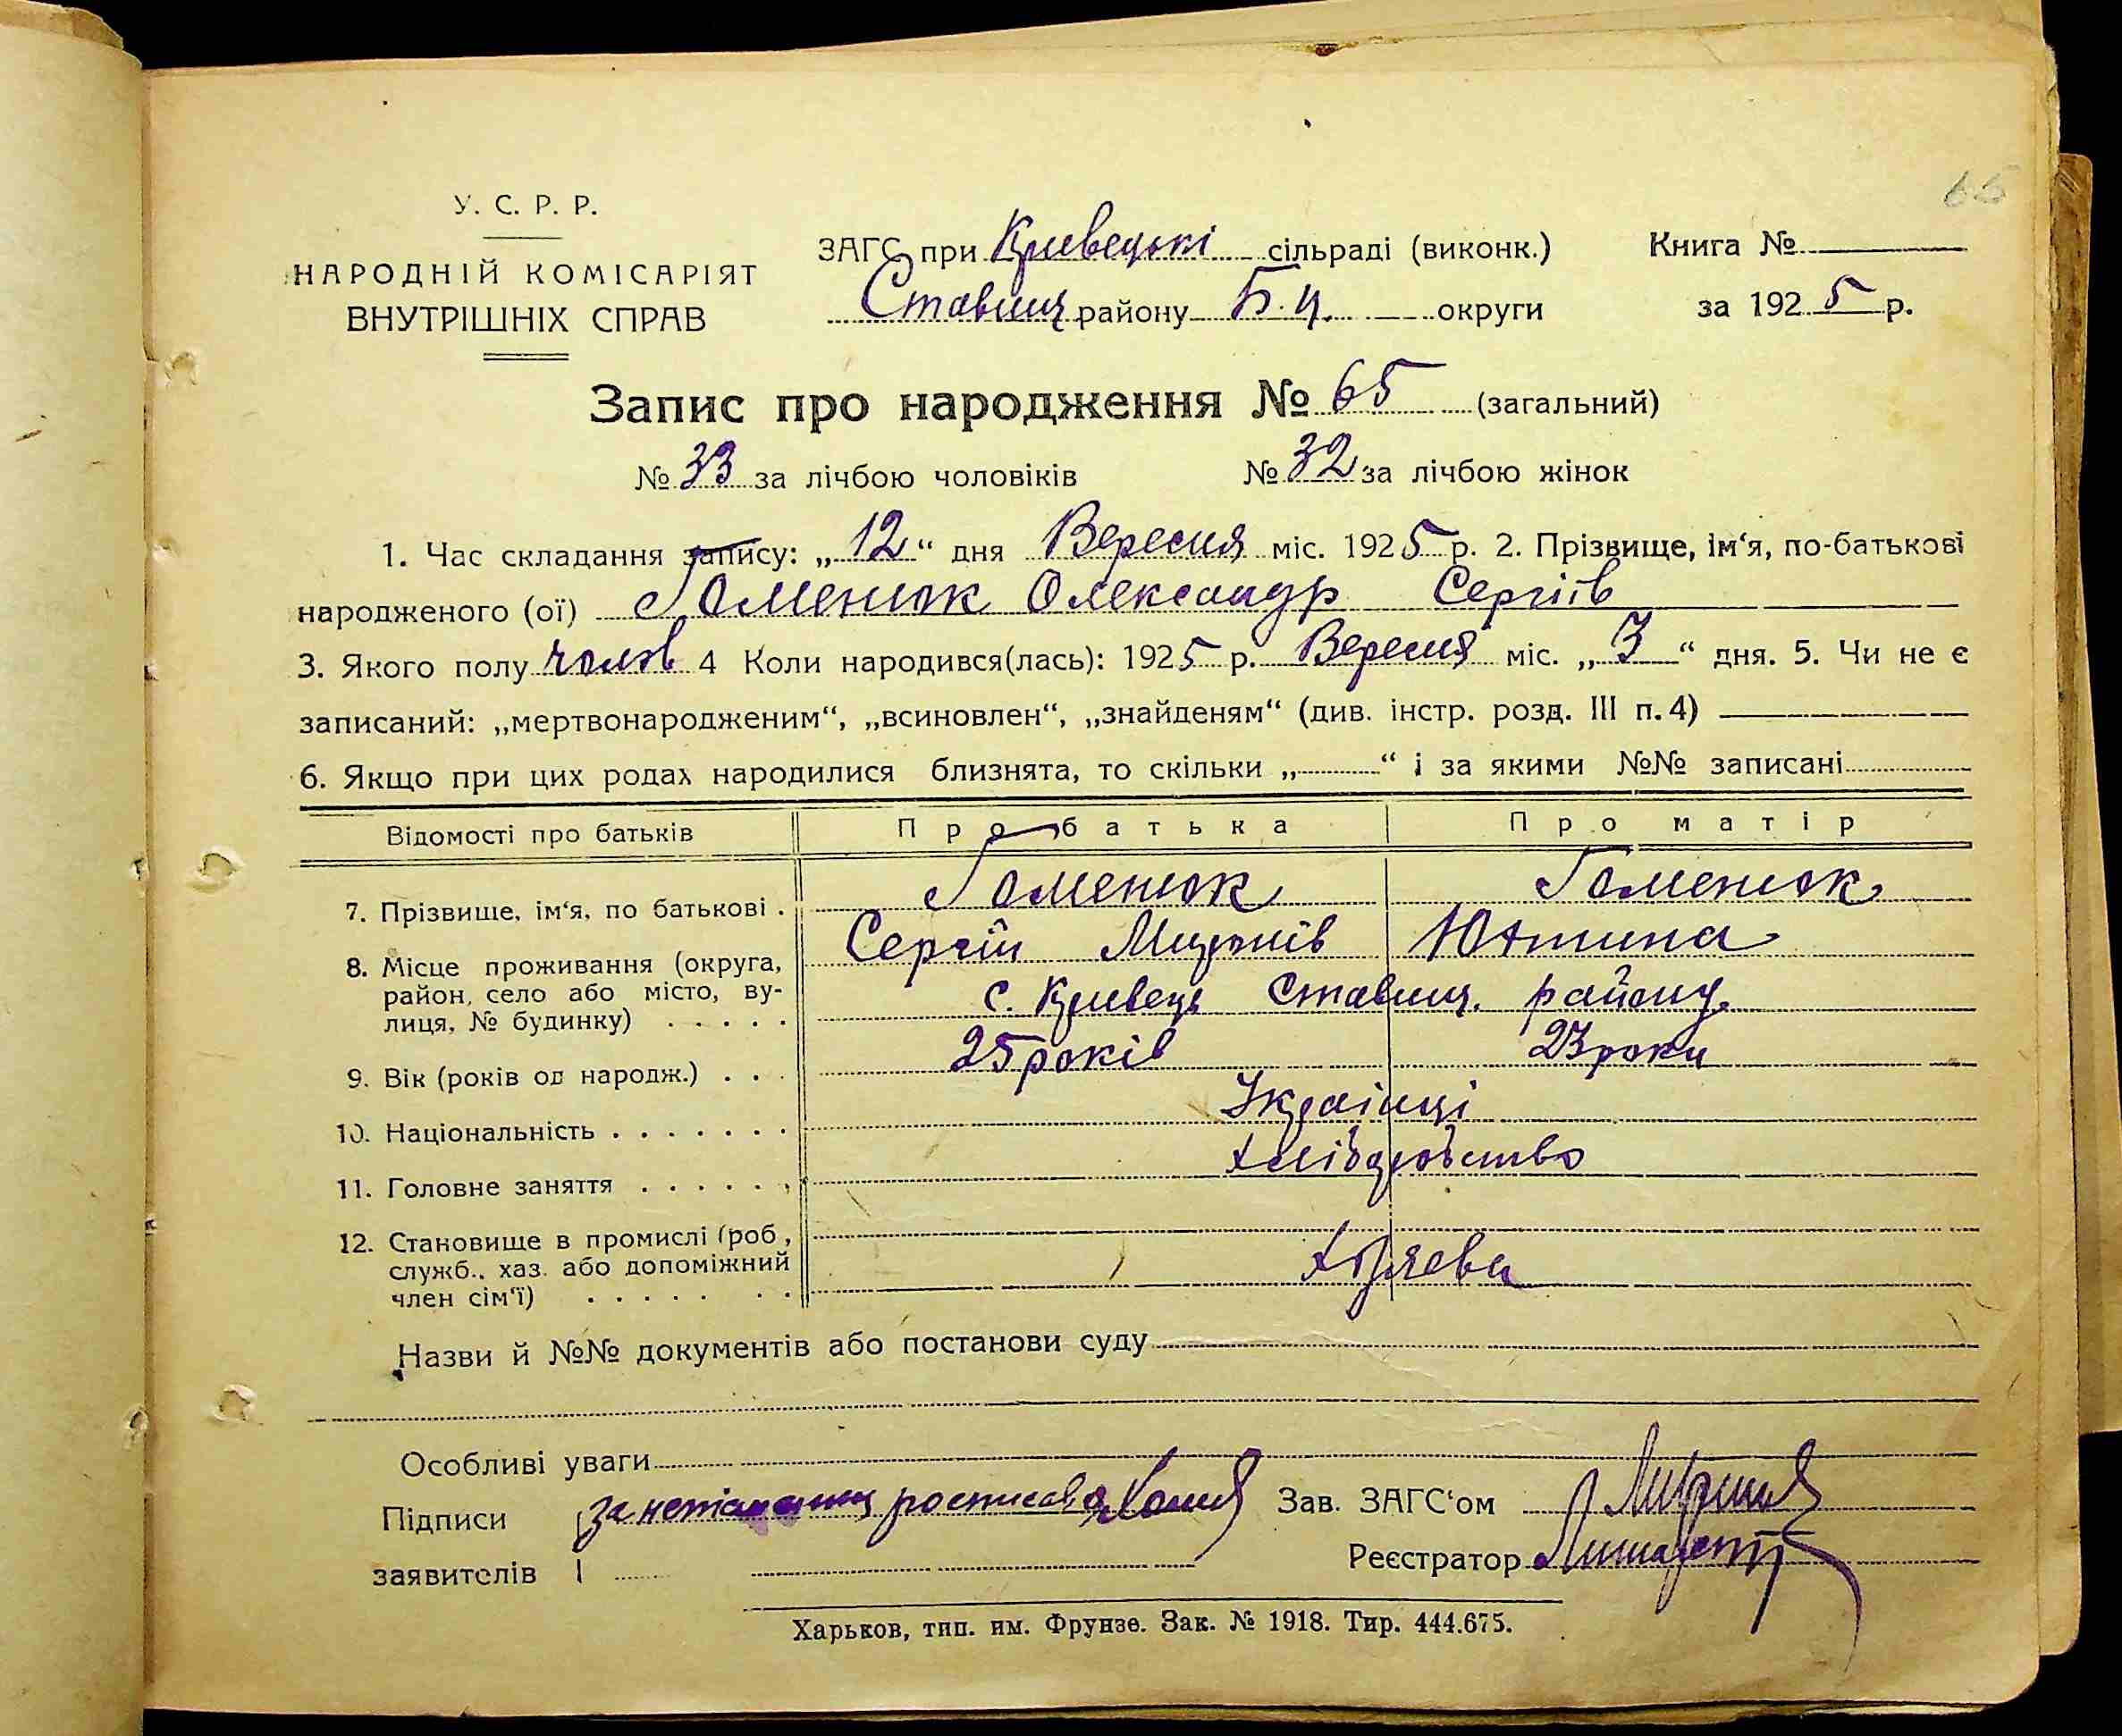 65
У. С. Р. Р.
НАРОДНІЙ КОМІСАРІЯТ
ВНУТРІШНІХ СПРАВ
ЗАГС при Кривецькі сільраді (виконк.)
Ставищ району Б. Ц. округи
Книга №
за 1925 р.
Запис про народження № 65 (загальний)
№ 33 за лічбою чоловіків № 32 за лічбою жінок
1. Час складання запису: „12“ дня Вересня міс. 1925 р. 2. Прізвище, ім‘я, по-батькові
народженого (ої) Гоменюк Олександр Сергіїв
3. Якого полу чолов 4 Коли народився(лась): 1925 р. Вересня міс. „3“ дня. 5. Чи не є
записаний: „мертвонародженим“, „всиновлен“, „знайденям“ (див. інстр. розд. III п. 4)
6. Якщо при цих родах народилися близнята, то скільки „ “ і за якими №№ записані
Відомості про батьків Про батька Про матір
7. Прізвище, ім‘я, по батькові . Гоменюк Гоменюк
Сергій Миронів Юхтина
8. Місце проживання (округа,
район, село або місто, ву-
лиця, № будинку) . . . . .
с. Кривець Ставищ. району
9. Вік (років од народж.) . . . 25 років 23 роки
10. Національність . . . . . . . Українці
11. Головне заняття . . . . . . Хліборобство
12. Становище в промислі (роб.,
служб., хаз. або допоміжний
член сім‘ї) . . . . . . .
Назви й №№ документів або постанови суду
Особливі уваги
Підписи за росписався
заявителів
Зав. ЗАГС‘ом
Реєстратор
Харьков, тип. им. Фрунзе. Зак. № 1918. Тир. 444.675.